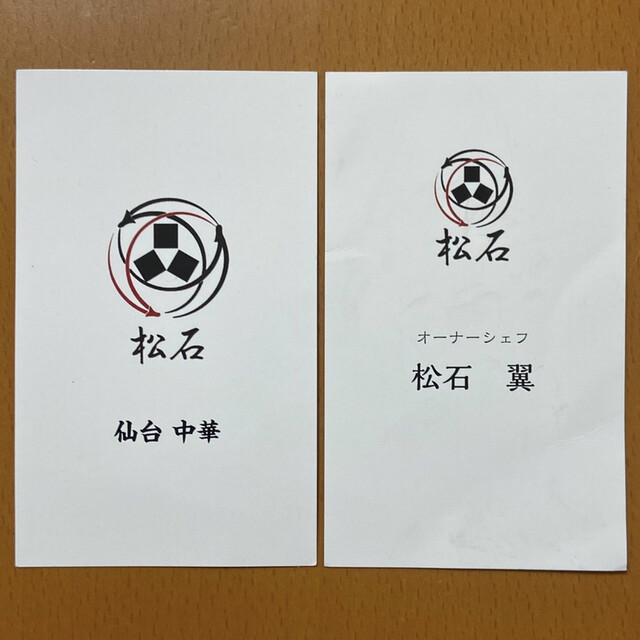 松石
仙台 中華
松石
オーナーシェフ
松石 翼